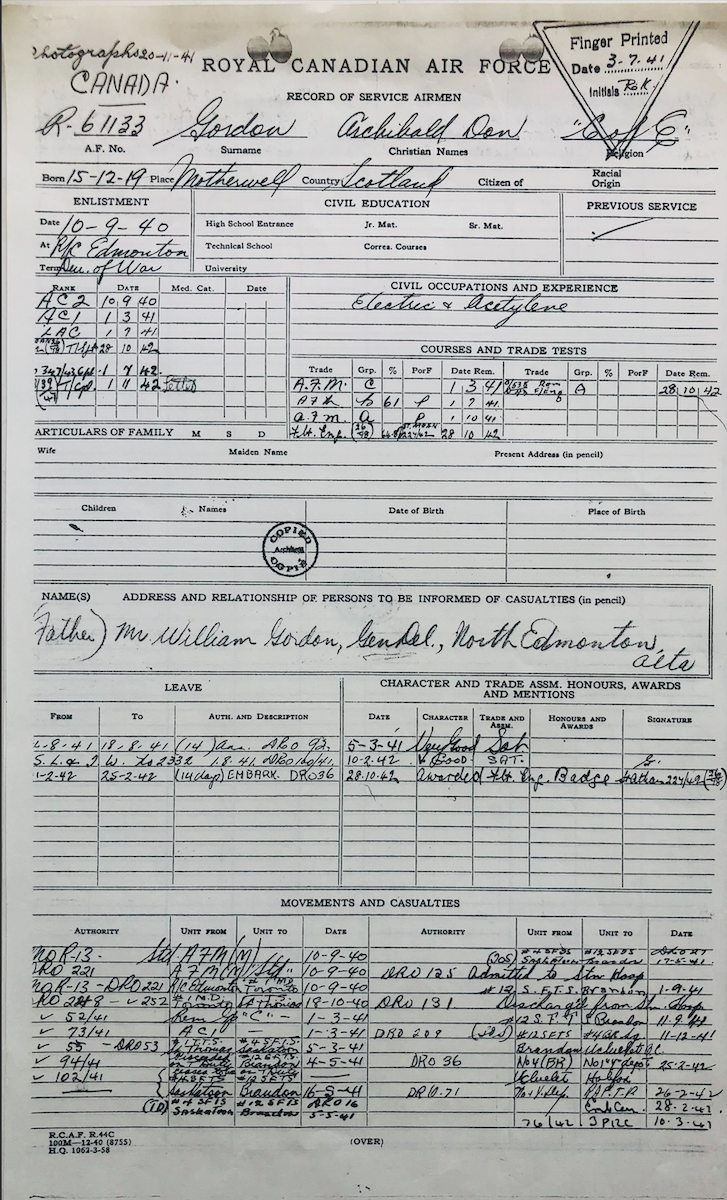 Photographs 20-11-41
CANADA.
ROYAL CANADIAN AIR FORCE
Finger Printed
Date 3.7.41
Initials
RECORD OF SERVICE AIRMEN
R-61133 Gordon Archibald Don "C of C"
A.F. No. Surname Christian Names Religion
Born 15-12-19 Place Motherwell Country Scotland Citizen of Racial Origin
ENLISTMENT CIVIL EDUCATION PREVIOUS SERVICE
Date 10-9-40 High School Entrance Jr. Mat. Sr. Mat.
At R/C Edmonton Technical School Corres. Courses
Term Dur. of War University
RANK DATE Med. Cat. Date CIVIL OCCUPATIONS AND EXPERIENCE
AC2 10 9 40 Electric & Acetylene
AC1 1 3 41
LAC 1 7 41 COURSES AND TRADE TESTS
T/Sgt 28 10 42
Trade Grp. % PorF Date Rem. Trade Grp. % PorF Date Rem.
Cpl. 1 7 42 A.F.M. C 1 3 41 A 28 10 42
T/Cpl. 1 11 42 61 P 1 7 41
A.F.M. A P 1 10 41
ARTICULARS OF FAMILY M S D Flt. Eng. 28 10 42
Wife Maiden Name Present Address (in pencil)
Children Names Date of Birth Place of Birth
COPIED
COPIÉ
NAME(S) ADDRESS AND RELATIONSHIP OF PERSONS TO BE INFORMED OF CASUALTIES (in pencil)
Father) Mr. William Gordon, Gen Del., North Edmonton,
Alta
LEAVE CHARACTER AND TRADE ASSM. HONOURS, AWARDS AND MENTIONS
FROM TO AUTH. AND DESCRIPTION DATE CHARACTER TRADE AND ASSM. HONOURS AND AWARDS SIGNATURE
-8-41 18-8-41 (14) Ann. DRO 93. 5-3-41 Very Good Sat.
10-2-42 V GOOD SAT.
1-2-42 25-2-42 (14 days) EMBARK. DRO36 28.10.42 awarded Flt. Eng. Badge
MOVEMENTS AND CASUALTIES
AUTHORITY UNIT FROM UNIT TO DATE AUTHORITY UNIT FROM UNIT TO DATE
No R-13- Std AFM(M) 10-9-40 #4 SFTS #12 SFTS
Saskatoon Brandon 17-5-41
DRO 221 AFM(M) "Std" 10-9-40 DRO 125 Admitted to Stn Hosp
No R-13-DRO221 R/C Edmonton Toronto 10-9-40 #12 S.F.T.S. Brandon 1-9-41
DRO 248 - 252 Toronto St Thomas 18-10-40 DRO 131 Discharged from Stn Hosp
52/41 Rem Gp "C" - 1-3-41 #12 S.F.T.S Brandon 11-9-41
73/41 AC1 - 1-3-41 DRO 209 #12 SFTS 11-12-41
55 - DRO53 St Thomas Saskatoon 5-3-41 Brandon Ucluelet B.C.
94/41 Brandon 4-5-41 DRO 36 No4(BR) No1Y dept 25-2-42
102/41 #4 SFTS #12 SFTS Ucluelet Halifax
Saskatoon Brandon 16-5-41 DRO.71 No.1Y.Dep. 26-2-42
(TD) #4 SFTS #12 SFTS DRO 16 28-2-42
Saskatoon Brandon 5-5-41
76/42 3 PRC 10.3.42
R.C.A.F. R.44C
100M-12-40 (8755)
H.Q. 1062-3-58
(OVER)